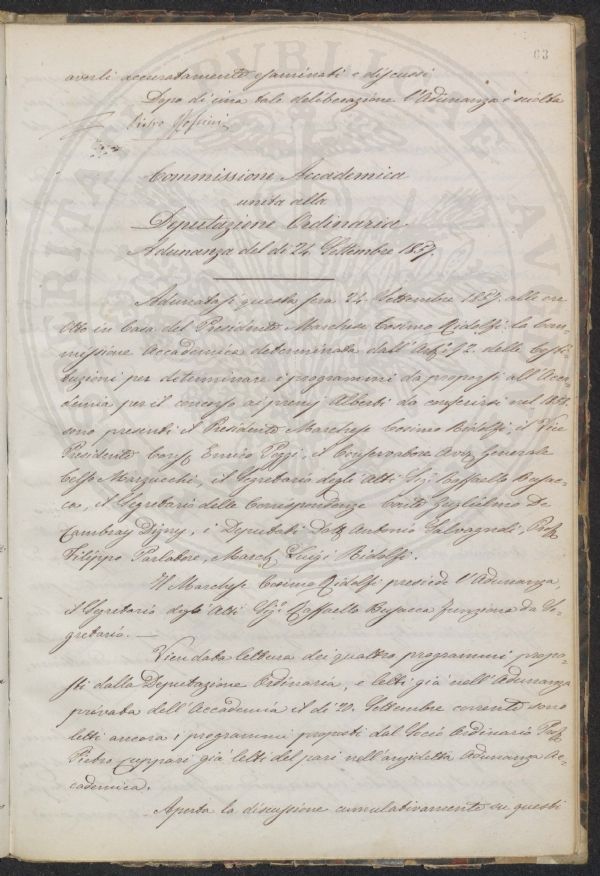 63
averli accuratamente esaminati e discussi
Dopo di una tale deliberazione l'Adunanza è sciolta
Pietro
Commissione Accademica
unita alla
Deputazione Ordinaria
Adunanza del dì 24 Settembre 1857.
Adunatasi questa sera 24 Settembre 1857. alle ore
Otto in Casa del Presidente Marchese Cosimo Ridolfi la Com-
missione Accademica determinata dall' Art. § 2. delle Costi
tuzioni per determinare i programmi da proporsi all' Acca-
demia per il concorso ai premj Alberti da conferirsi nel
sono presenti il Presidente Marchese Cosimo Ridolfi, il Vice
Presidente Enrico Poggi, il Conservatore Generale
Celso Marzucchi, il Segretario degli Atti Raffaello Busac-
ca, il Segretario delle Corrispondenze Conte Guglielmo De
Cambray Digny, i Deputati Dott Antonio Salvagnoli, Prof
Filippo Parlatore, March Luigi Ridolfi.
Il Marchese Cosimo Ridolfi presiede l'Adunanza
il Segretario degli Atti Sigr Raffaello Busacca funziona da Se-
gretario. —
Vien data lettura dei quattro programmi propo-
sti dalla Deputazione Ordinaria, e letti già nell'Adunanza
privata dell'Accademia il dì 20. Settembre corrente sono
letti ancora i programmi proposti dal Socio Ordinario Prof
Pietro Cuppari già letti del pari nell'anzidetta Adunanza Ac-
cademica.
Aperta la discussione cumulativamente su questi